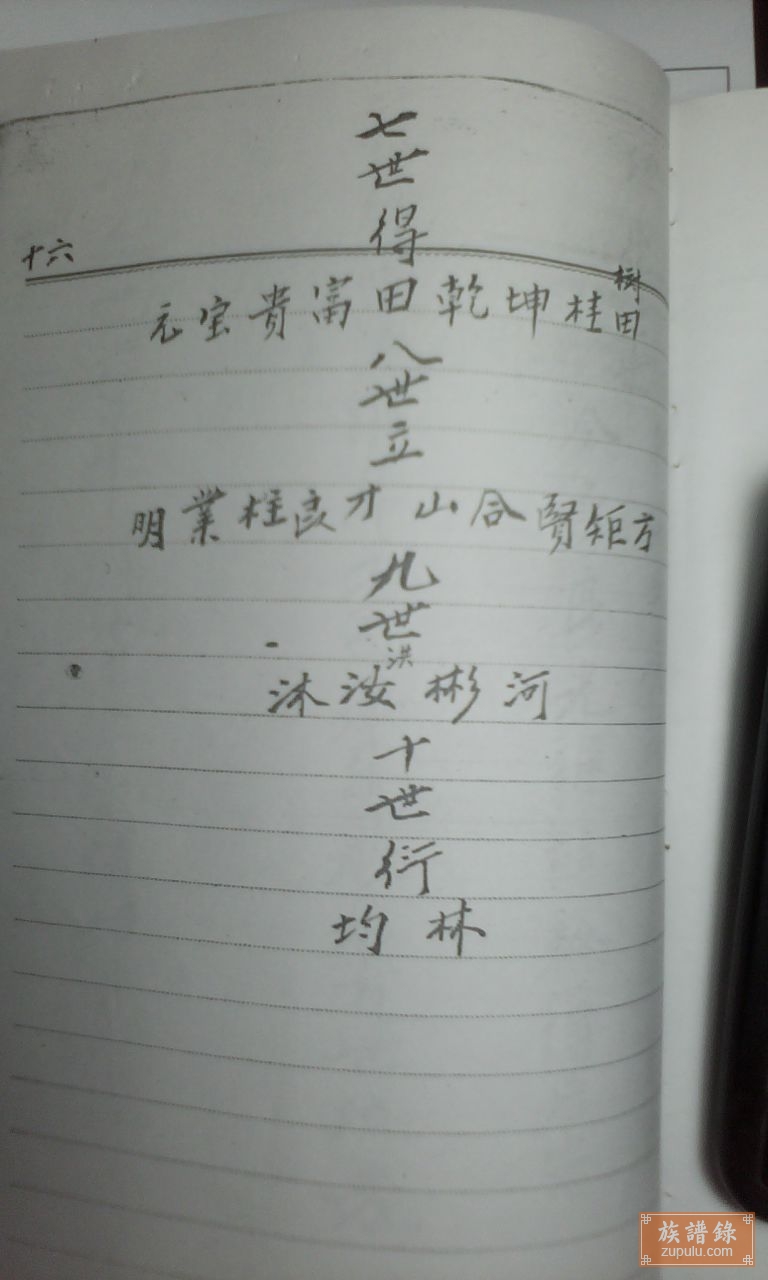 十六
七世得
樹田 桂 坤 乾 田 富 貴 宝 元
八世立
方 矩 賢 合 山 才 良 柱 業 明
九世洪
河 彬 汝 沐
十世衍
林 均
族譜錄
zupulu.com